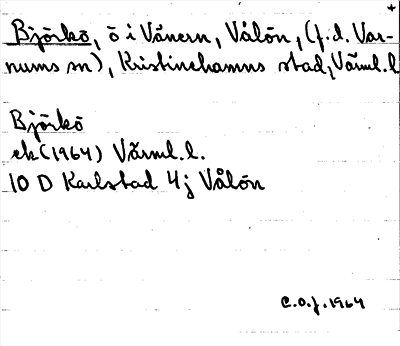 Björkö, ö i Vänern, Vålön, (f.d. Var-
nums sn), Kristinehamns stad, Värml.l
Björkö
ek (1964) Värml.l.
10 D Karlstad 4j Vålön
C.O.J. 1964